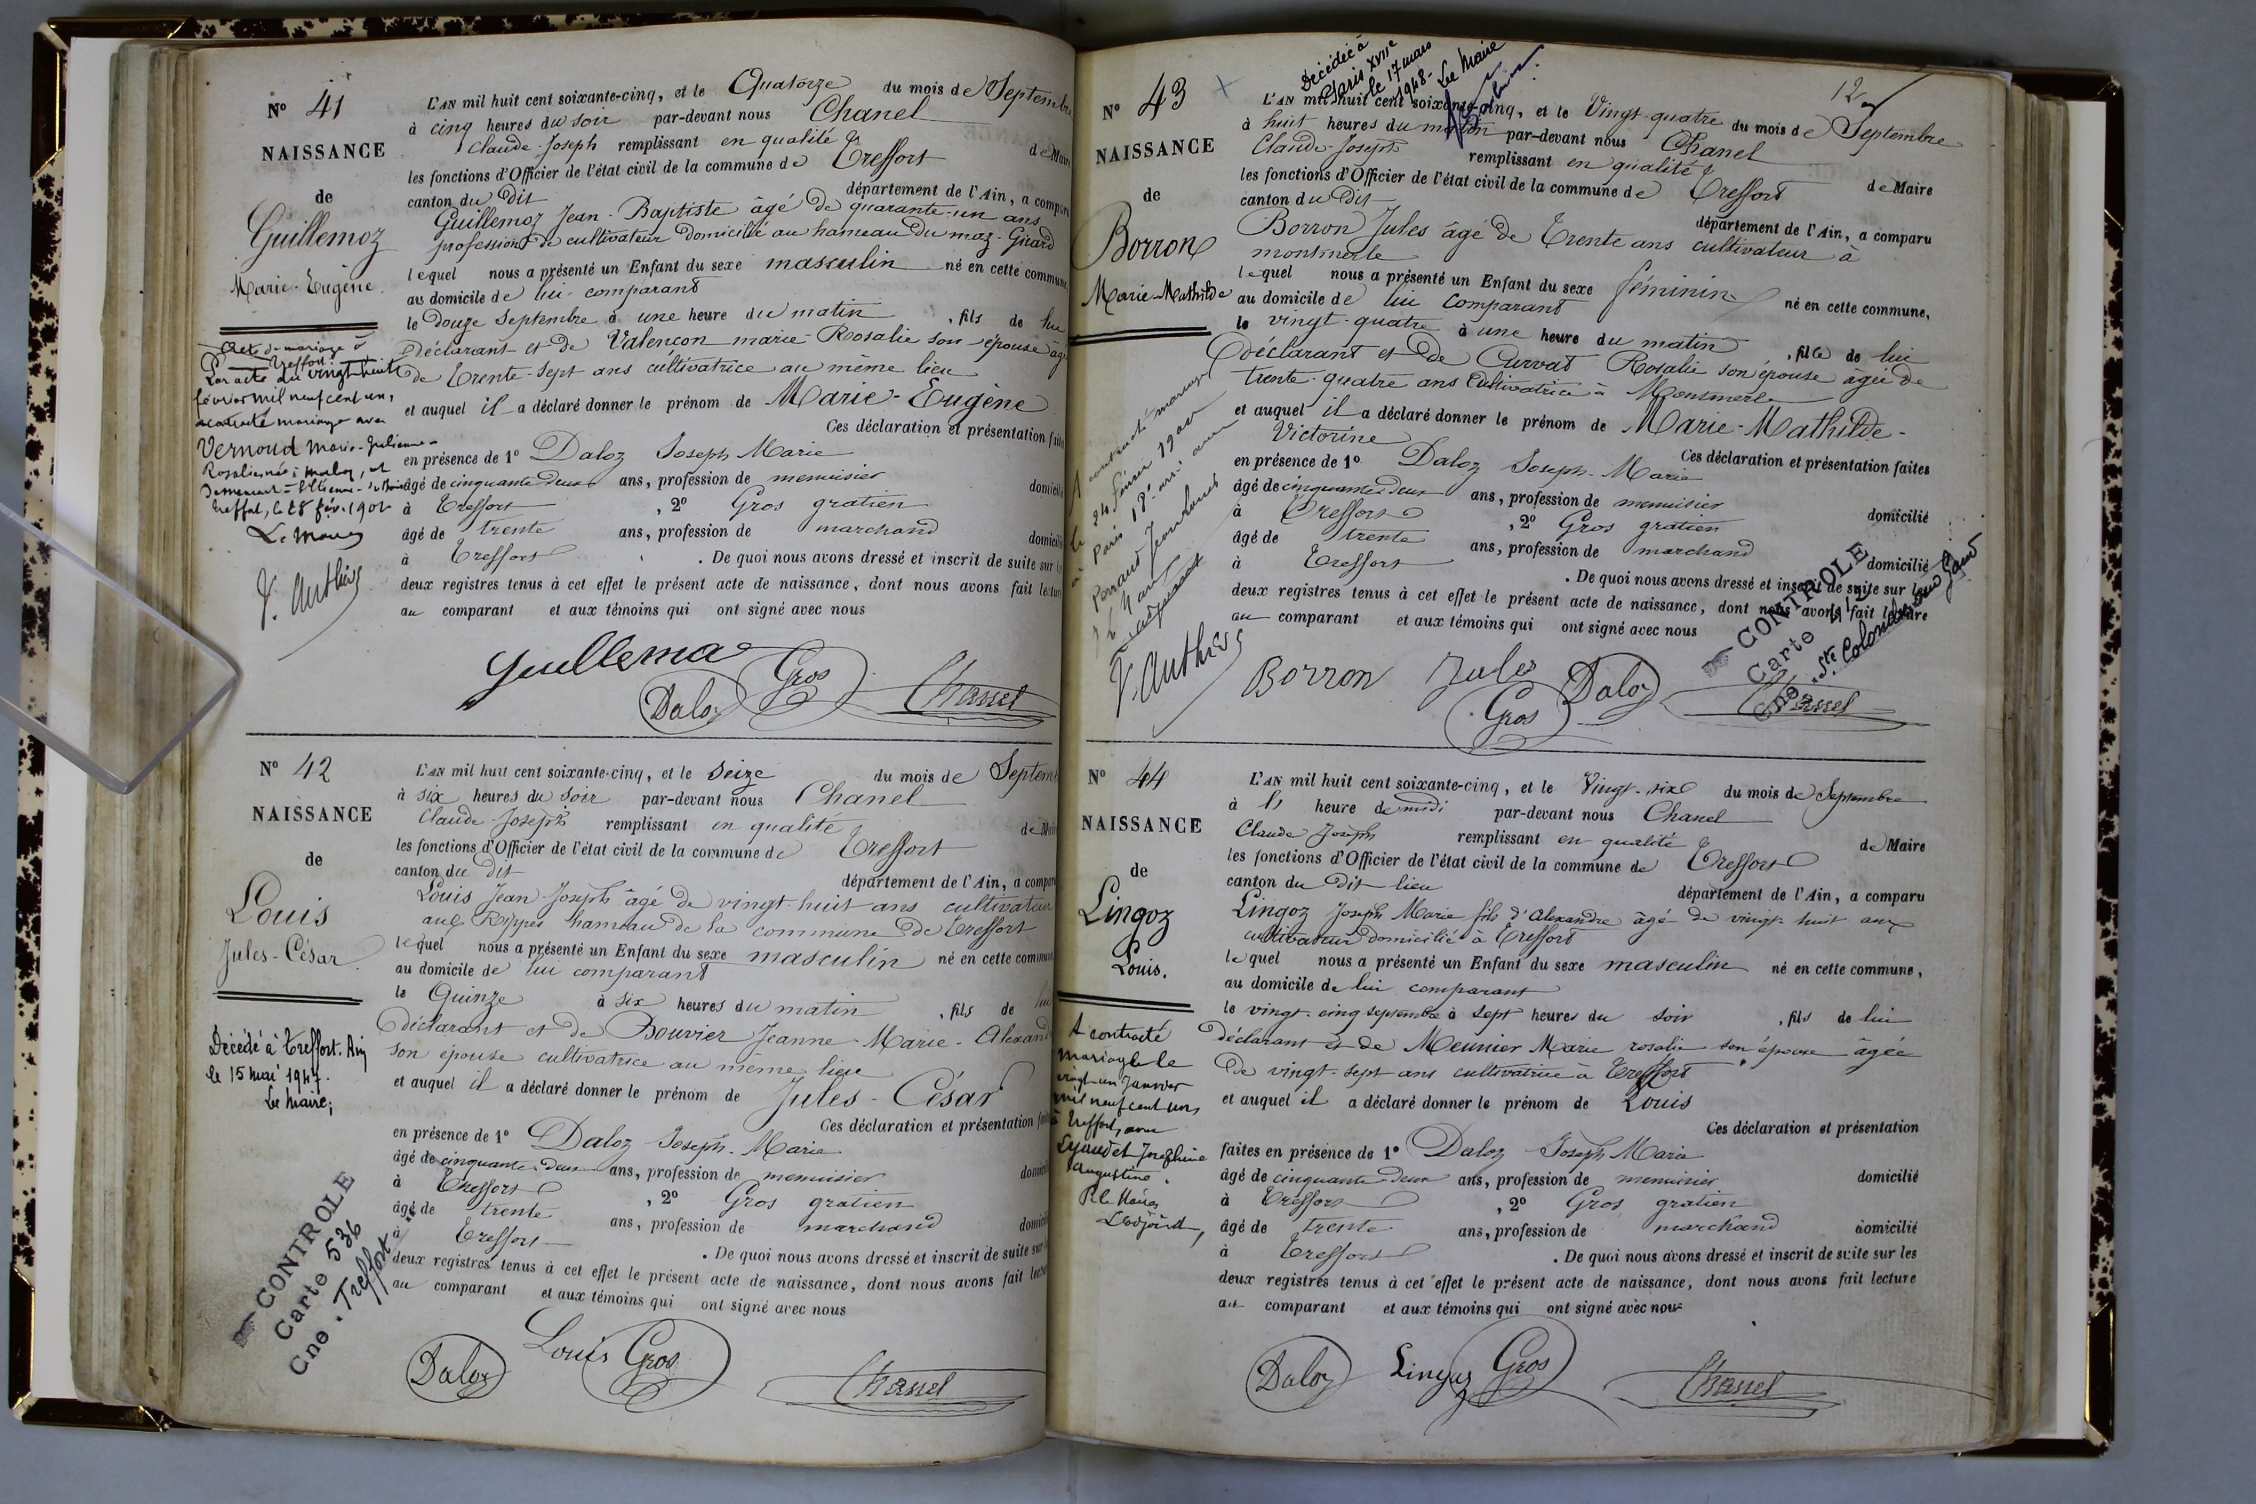 N° 41
NAISSANCE
de
Guillemoz
Marie-Eugène
L'AN mil huit cent soixante-cinq, et le Quatorze du mois de Septembre
à cinq heures du soir par-devant nous Chanel
Claude-Joseph remplissant en qualité de Maire
les fonctions d'Officier de l'état civil de la commune de Treffort
canton du dit département de l'Ain, a comparu
Guillemoz Jean-Baptiste âgé de quarante-un ans
profession de cultivateur domicilié au hameau du maz-Girard
lequel nous a présenté un Enfant du sexe masculin né en cette commune,
au domicile de lui comparant
le douze Septembre à une heure du matin, fils de lui
déclarant et de Valençon marie-Rosalie son épouse âgée
de Trente-sept ans cultivatrice au même lieu
et auquel il a déclaré donner le prénom de Marie-Eugène
Ces déclaration et présentation faites
en présence de 1° Daloz Joseph Marie
âgé de cinquante deux ans, profession de menuisier domicilié
à Treffort, 2° Gros gratien
âgé de trente ans, profession de marchand domicilié
à Treffort. De quoi nous avons dressé et inscrit de suite sur les
deux registres tenus à cet effet le présent acte de naissance, dont nous avons fait lecture
au comparant et aux témoins qui ont signé avec nous
Acte de mariage à
Treffort
Par acte du vingt-huit
février mil neuf cent un,
a contracté mariage avec
Vernoud Marie-Julienne-
Treffort, le 28 fév. 1901
Le Maire
V. Authier
Guillemoz
Daloz Gros Chanel
N° 42
NAISSANCE
de
Louis
Jules-César
L'AN mil huit cent soixante-cinq, et le Seize du mois de Septembre
à six heures du soir par-devant nous Chanel
Claude-Joseph remplissant en qualité de Maire
les fonctions d'Officier de l'état civil de la commune de Treffort
canton du dit département de l'Ain, a comparu
Louis Jean-Joseph âgé de vingt-huit ans cultivateur
aux Rippes hameau de la commune de Treffort
lequel nous a présenté un Enfant du sexe masculin né en cette commune
au domicile de lui comparant
le Quinze à six heures du matin, fils de lui
déclarant et de Bouvier Jeanne-Marie-Alexand
son épouse cultivatrice au même lieu
et auquel il a déclaré donner le prénom de Jules-César
Ces déclaration et présentation faites
en présence de 1° Daloz Joseph-Marie
âgé de cinquante deux ans, profession de menuisier domicilié
à Treffort, 2° Gros gratien
âgé de trente ans, profession de marchand domicilié
à Treffort. De quoi nous avons dressé et inscrit de suite sur
deux registres tenus à cet effet le présent acte de naissance, dont nous avons fait lecture
au comparant et aux témoins qui ont signé avec nous
Décédé à Treffort. Ain
le 15 mai 1947.
Le Maire;
CONTROLE
Carte 536
Cne. Treffort
Daloz Louis Gros Chanel
12
N° 43
NAISSANCE
de
Borron
Marie-Mathilde
Décédée à
Paris XVIIe
le 17 mars
1948. Le Maire
L'AN mil huit cent soixante-cinq, et le Vingt-quatre du mois de Septembre
à huit heures du matin par-devant nous Chanel
Claude-Joseph remplissant en qualité de Maire
les fonctions d'Officier de l'état civil de la commune de Treffort
canton du Dit département de l'Ain, a comparu
Borron Jules âgé de Trente ans cultivateur à
montmerle
lequel nous a présenté un Enfant du sexe féminin né en cette commune,
au domicile de lui comparant
le vingt-quatre à une heure du matin, fille de lui
déclarant et de Curvat Rosalie son épouse âgée de
trente-quatre ans Cultivatrice à Monsmerle
et auquel il a déclaré donner le prénom de Marie-Mathilde-
Victorine Ces déclaration et présentation faites
en présence de 1° Daloz Joseph-Marie
âgé de cinquante deux ans, profession de menuisier domicilié
à Treffort, 2° Gros gratien
âgé de trente ans, profession de marchand domicilié
à Treffort. De quoi nous avons dressé et inscrit de suite sur les
deux registres tenus à cet effet le présent acte de naissance, dont nous avons fait lecture
au comparant et aux témoins qui ont signé avec nous
A contracté mariage
le 24 février 1900
à Paris 18e arr. avec
V. Authier
CONTROLE
Carte
Cne. Ste Colombe
Borron Jules
Gros Daloz Chanel
N° 44
NAISSANCE
de
Lingoz
Louis.
L'AN mil huit cent soixante-cinq, et le Vingt-six du mois de Septembre
à heure de midi par-devant nous Chanel
Claude Joseph remplissant en qualité de Maire
les fonctions d'Officier de l'état civil de la commune de Treffort
canton du Dit lieu département de l'Ain, a comparu
Lingoz Joseph Marie fils d'Alexandre âgé de vingt-huit ans
cultivateur domicilié à Treffort
lequel nous a présenté un Enfant du sexe masculin né en cette commune,
au domicile de lui comparant
le vingt-cinq septembre à sept heures du soir, fils de lui
déclarant et de Meunier Marie rosalie son épouse âgée
de vingt-sept ans cultivatrice à Treffort
et auquel il a déclaré donner le prénom de Louis
Ces déclaration et présentation
faites en présence de 1° Daloz Joseph Marie
âgé de cinquante deux ans, profession de menuisier domicilié
à Treffort, 2° Gros gratien
âgé de trente ans, profession de marchand domicilié
à Treffort. De quoi nous avons dressé et inscrit de suite sur les
deux registres tenus à cet effet le présent acte de naissance, dont nous avons fait lecture
au comparant et aux témoins qui ont signé avec nous
A contracté
mariage le
vingt-un Janvier
mil neuf cent un,
à Treffort, avec
Joséphine
Augustine.
P. le Maire
L'adjoint,
Daloz Lingoz Gros Chanel